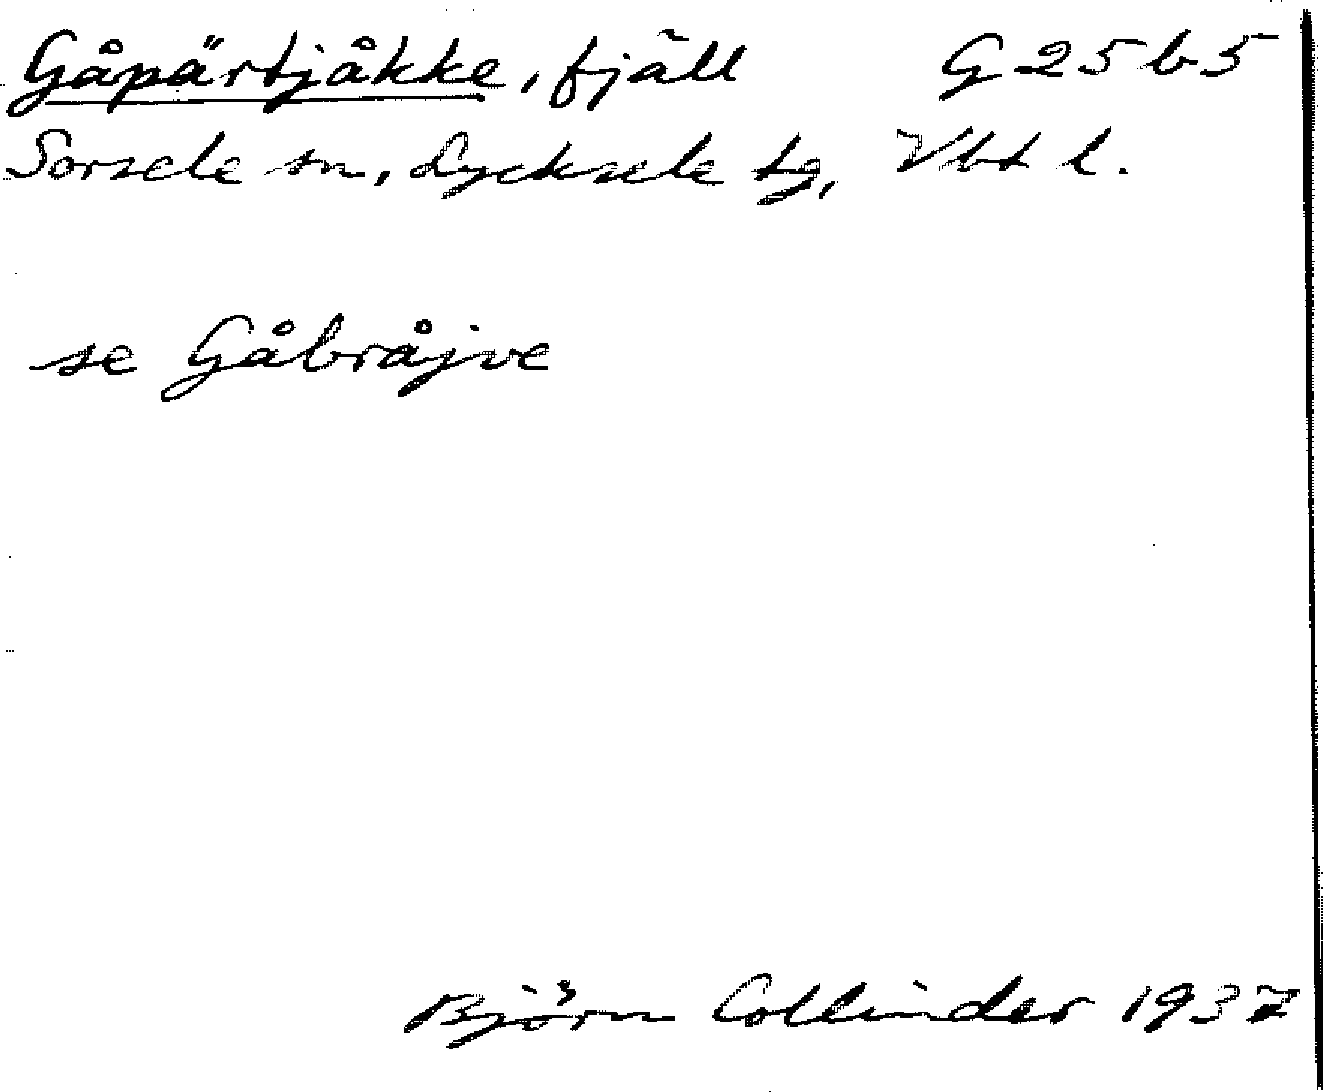 Gåpärtjåkke, fjäll G 25 b 5
Sorsele sn, Lycksele tg, Vbt l.
se Gåbråjve
Björn Collinder 1937